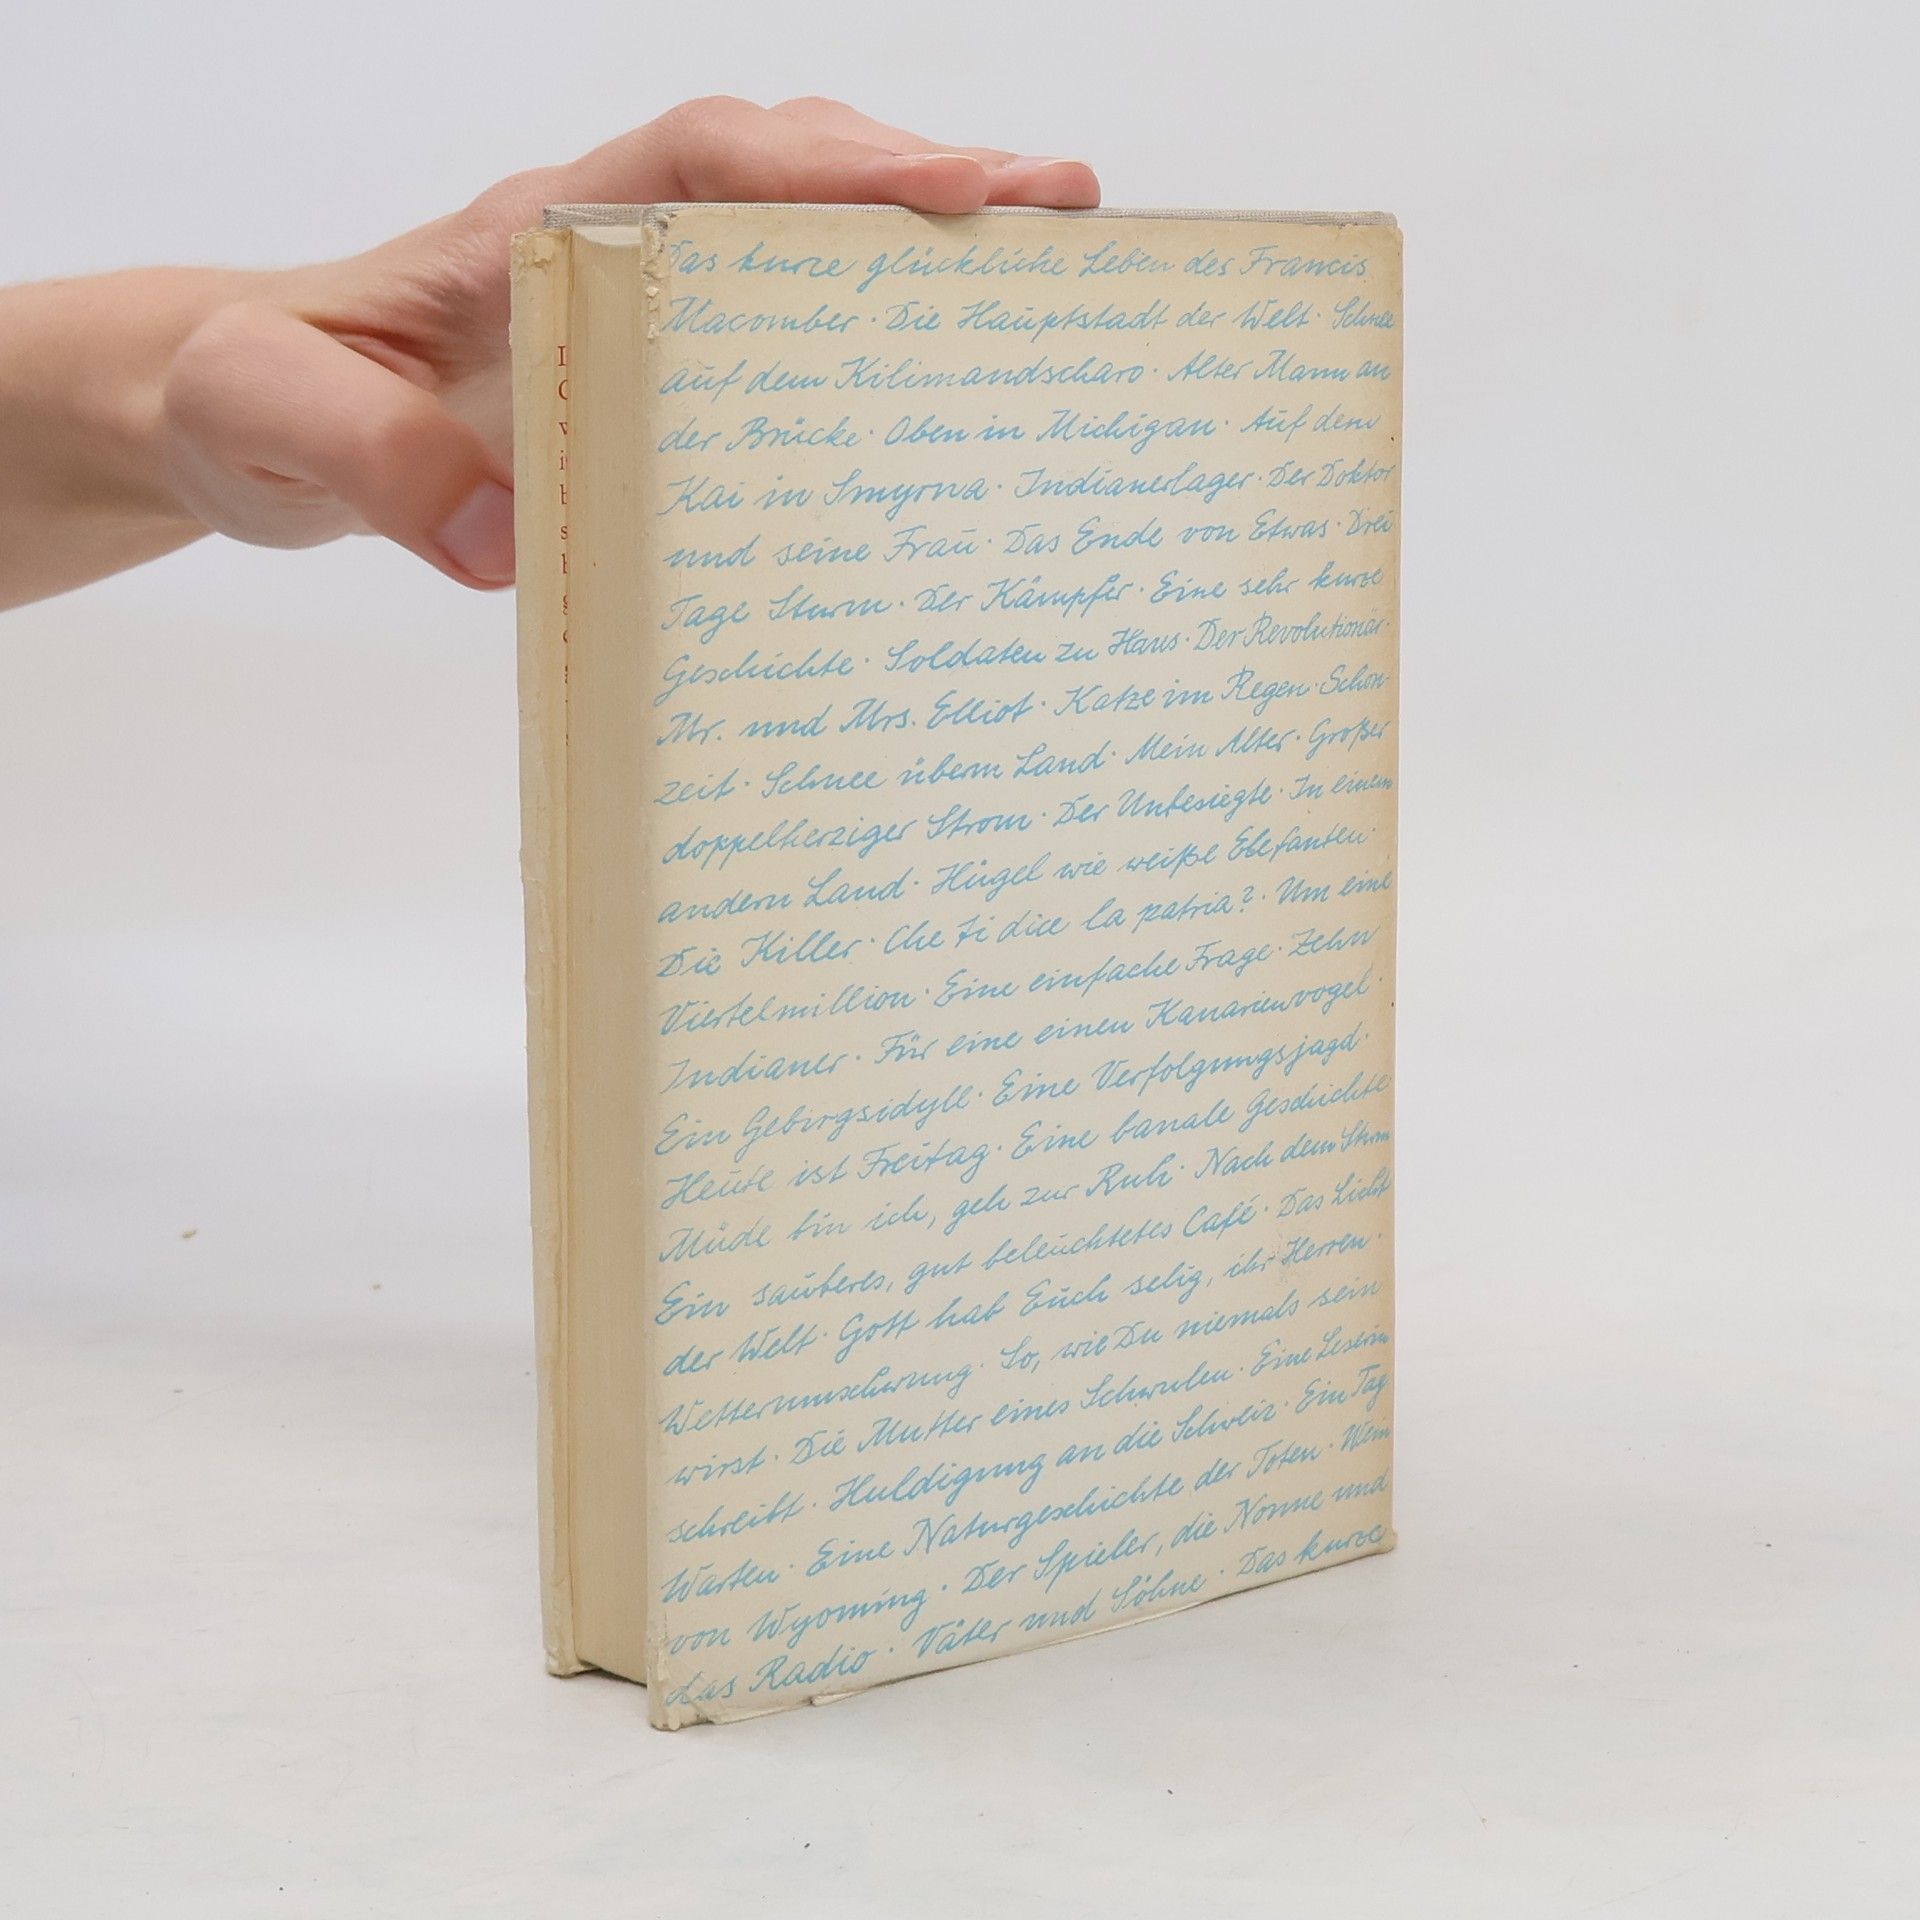 Das kurze glückliche Leben des Francis
Macomber · Die Hauptstadt der Welt · Schnee
auf dem Kilimandscharo · Alter Mann an
der Brücke · Oben in Michigan · Auf dem
Kai in Smyrna · Indianerlager · Der Doktor
und seine Frau · Das Ende von Etwas · Drei
Tage Sturm · Der Kämpfer · Eine sehr kurze
Geschichte · Soldaten zu Haus · Der Revolutionär ·
Mr. und Mrs. Elliot · Katze im Regen · Schon-
zeit · Schnee überm Land · Mein Alter · Großer
doppelherziger Strom · Der Unbesiegte · In einem
andern Land · Hügel wie weiße Elefanten ·
Die Killer · Che ti dice la patria? · Um eine
Viertelmillion · Eine einfache Frage · Zehn
Indianer · Für eine einen Kanarienvogel ·
Ein Gebirgsidyll · Eine Verfolgungsjagd ·
Heute ist Freitag · Eine banale Geschichte
Müde bin ich, geh zur Ruh · Nach dem Sturm
Ein sauberes, gut beleuchtetes Café · Das Licht
der Welt · Gott hab Euch selig, ihr Herren ·
Wetterumschwung · So, wie Du niemals sein
wirst · Die Mutter eines Schwulen · Eine Leserin
schreibt · Huldigung an die Schweiz · Ein Tag
Warten · Eine Naturgeschichte der Toten · Wein
von Wyoming · Der Spieler, die Nonne und
das Radio · Väter und Söhne · Das kurze